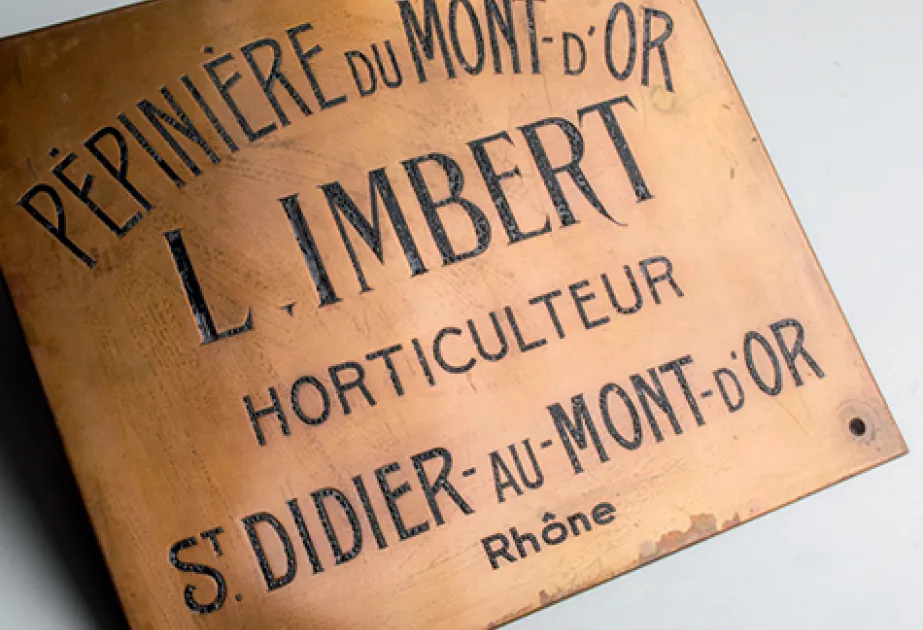 PÉPINIÈRE DU MONT-D'OR
L. IMBERT
HORTICULTEUR
ST. DIDIER-AU-MONT-D'OR
Rhône